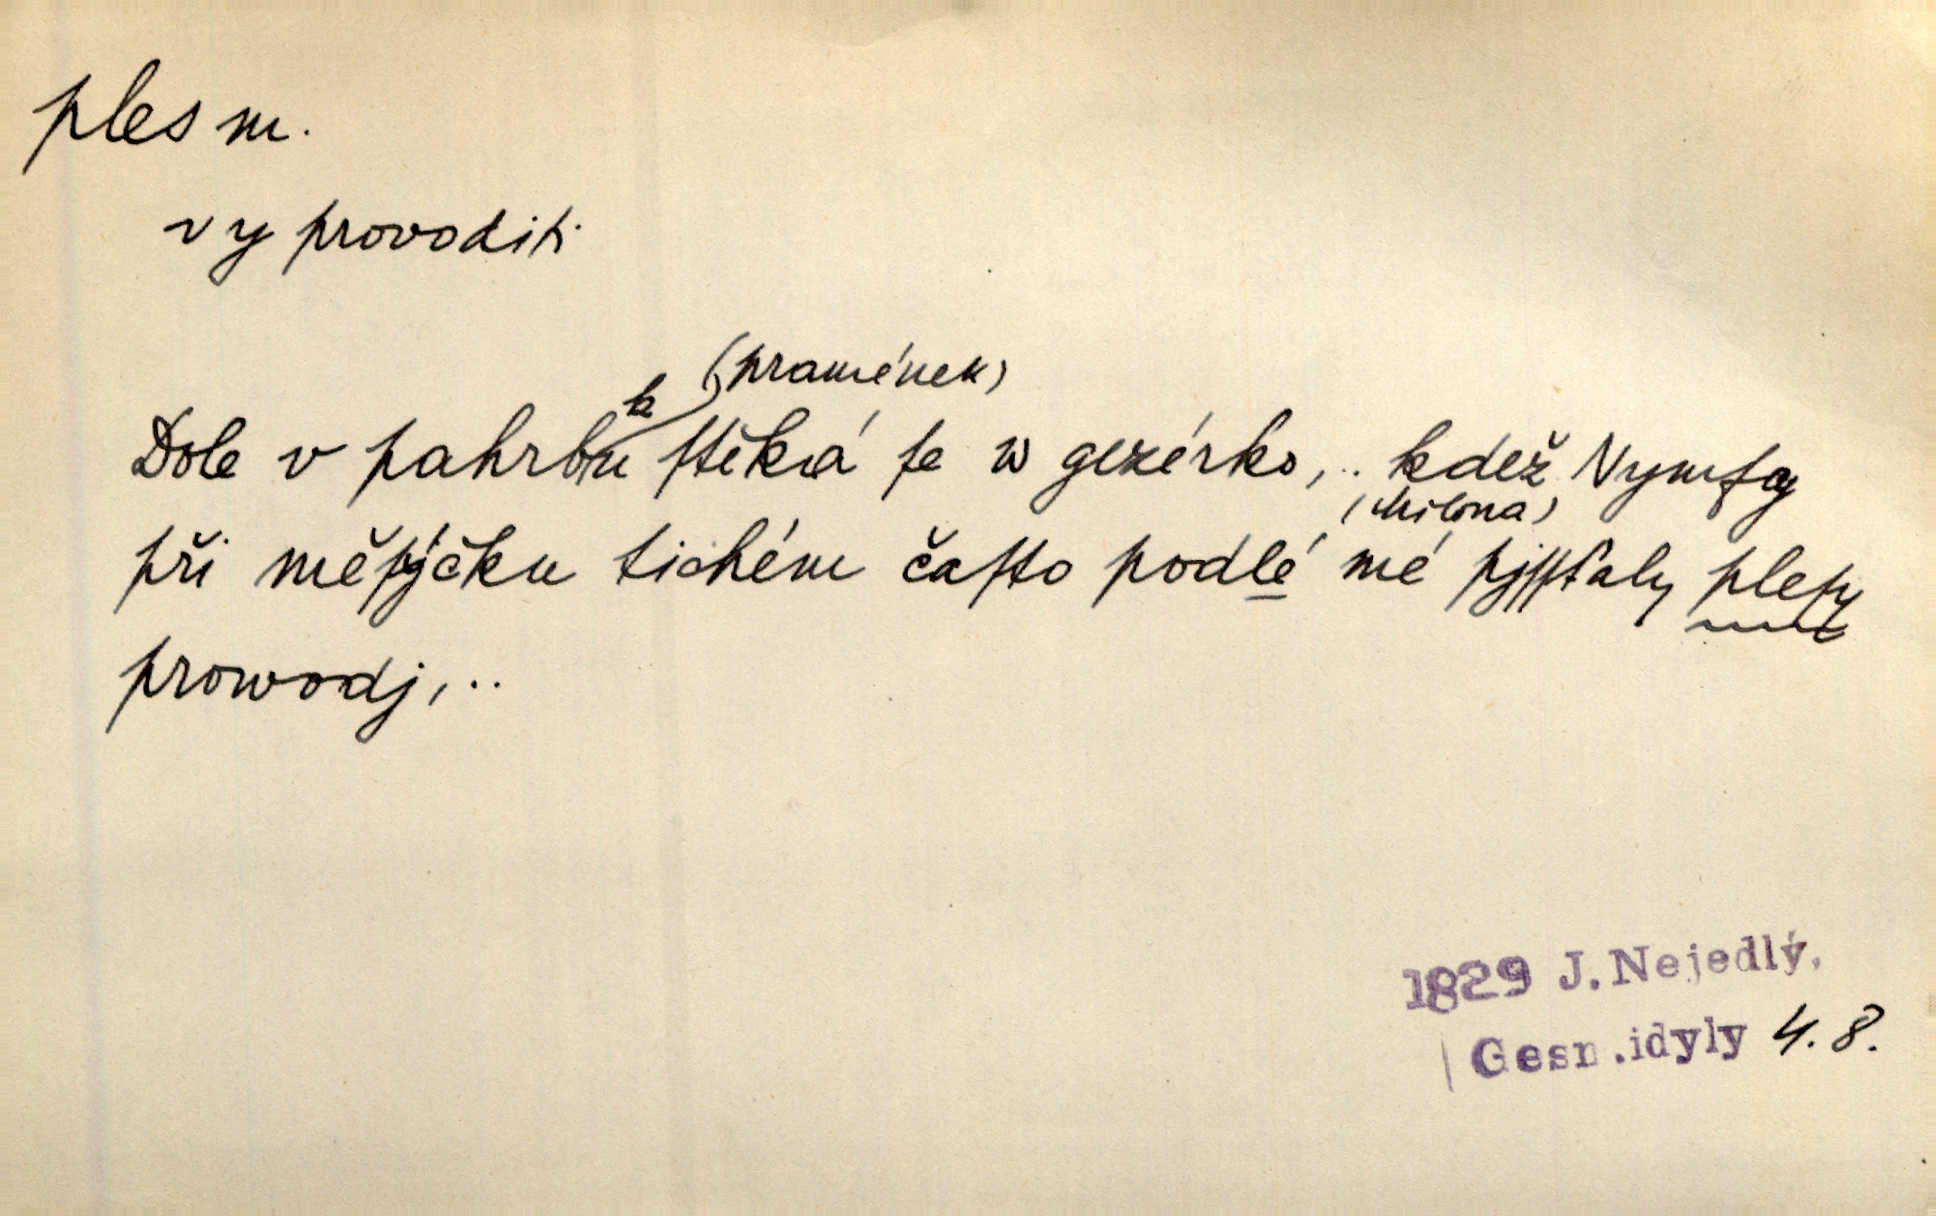 ples m.
vyprovoditi
(pramének)
Dole v pahrbku ſtěká ſe w gezérko, .. kdež Nymfy
(Milona)
při měſýčku tichém čaſto podlé mé pjſſťaly pleſy
prowodj, ..
1829 J. Nejedlý,
Gesn. idyly 4. 8.